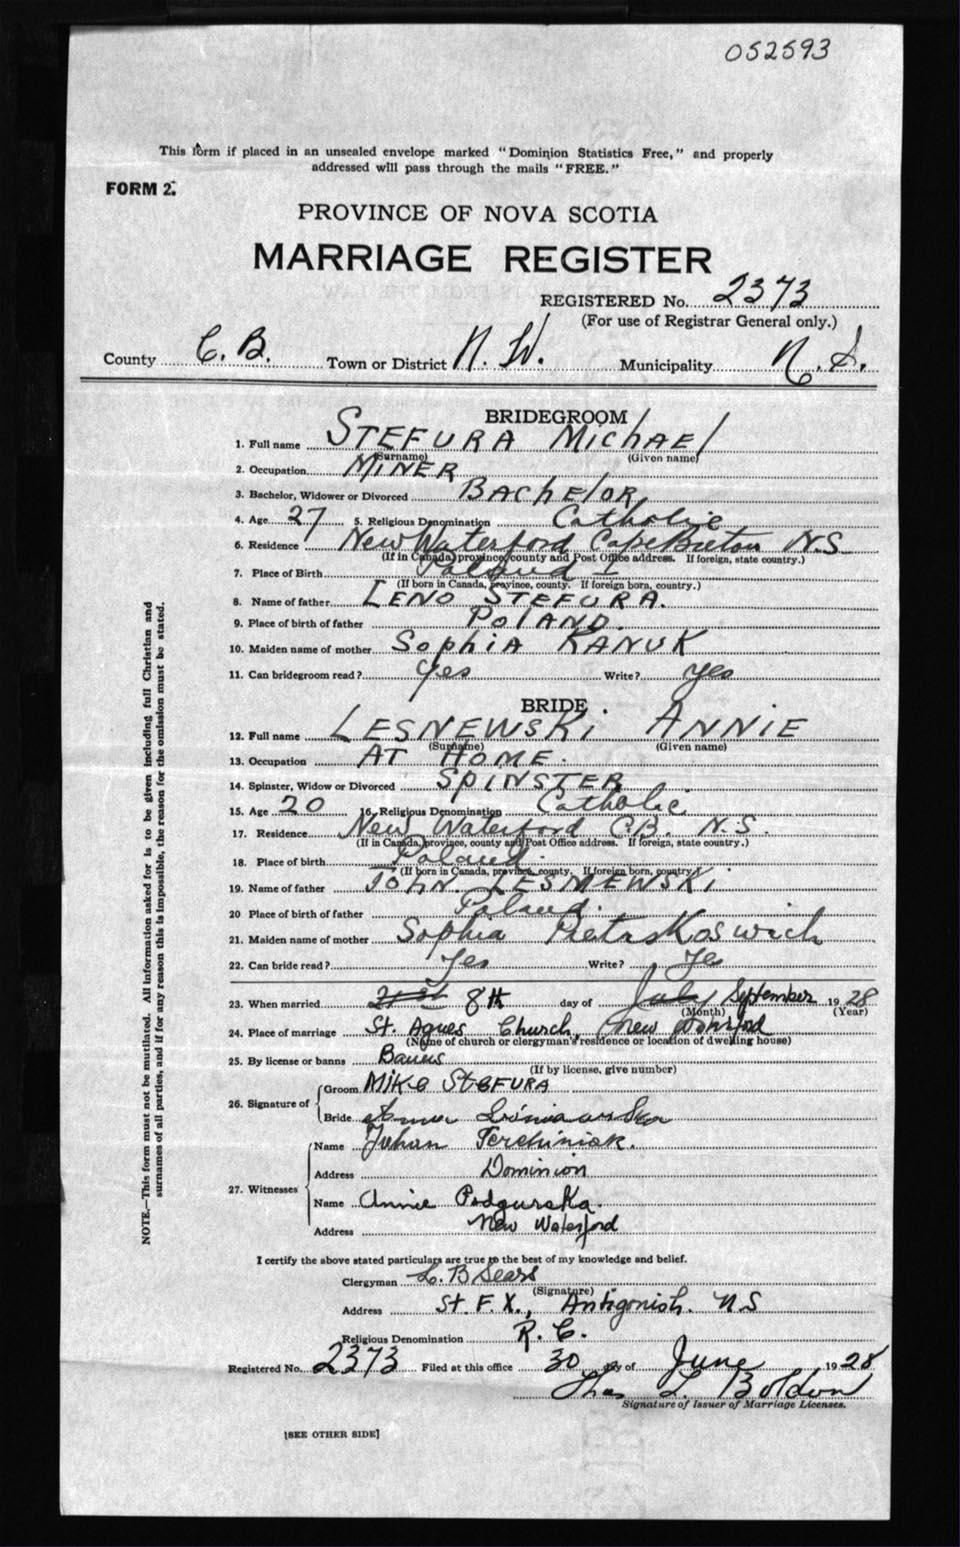 052593
This form if placed in an unsealed envelope marked "Dominion Statistics Free," and properly
addressed will pass through the mails "FREE."
FORM 2.
PROVINCE OF NOVA SCOTIA
MARRIAGE REGISTER
REGISTERED No. 2373
(For use of Registrar General only.)
County C. B. Town or District N. W. Municipality N. S.
BRIDEGROOM
1. Full name STEFURA MichAEl
(Surname) (Given name)
2. Occupation MINER
3. Bachelor, Widower or Divorced BAChElOR
4. Age 27 5. Religious Denomination Catholic
6. Residence New Waterford Cape Breton N.S.
(If in Canada, province, county and Post Office address. If foreign, state country.)
7. Place of Birth Poland
(If born in Canada, province, county. If foreign born, country.)
8. Name of father LENO STEFURA.
9. Place of birth of father PolAND.
10. Maiden name of mother SophiA KANUK
11. Can bridegroom read? Yes Write? Yes
BRIDE.
12. Full name LESNEWSKi ANNiE
(Surname) (Given name)
13. Occupation AT HOME.
14. Spinster, Widow or Divorced SPINSTER
15. Age 20 16. Religious Denomination Catholic
17. Residence New Waterford C.B. N.S.
(If in Canada, province, county and Post Office address. If foreign, state country.)
18. Place of birth Poland.
(If born in Canada, province, county. If foreign born, country.)
19. Name of father JOHN. LESMEWSKi
20 Place of birth of father Poland.
21. Maiden name of mother Sophia Pietraskoswich
22. Can bride read? Yes Write? Yes
23. When married 21st 8th day of July September 1928
(Month) (Year)
24. Place of marriage St. Agnes Church, New Waterford
(Name of church or clergyman's residence or location of dwelling house)
25. By license or banns Banns
(If by license, give number)
26. Signature of Groom MIKE STEFURA
Bride Anna
27. Witnesses Name Juhan
Address Dominion
Name Annie Podgurska.
Address New Waterford
I certify the above stated particulars are true to the best of my knowledge and belief.
Clergyman L. B Sears
(Signature)
Address St. F. X., Antigonish. N S
Religious Denomination R. C.
Registered No. 2373 Filed at this office 30 day of June 1928
Thos L. Boldon
Signature of Issuer of Marriage Licenses.
[SEE OTHER SIDE]
NOTE.—This form must not be mutilated. All information asked for is to be given including full Christian and
surnames of all parties, and if for any reason this is impossible, the reason for the omission must be stated.